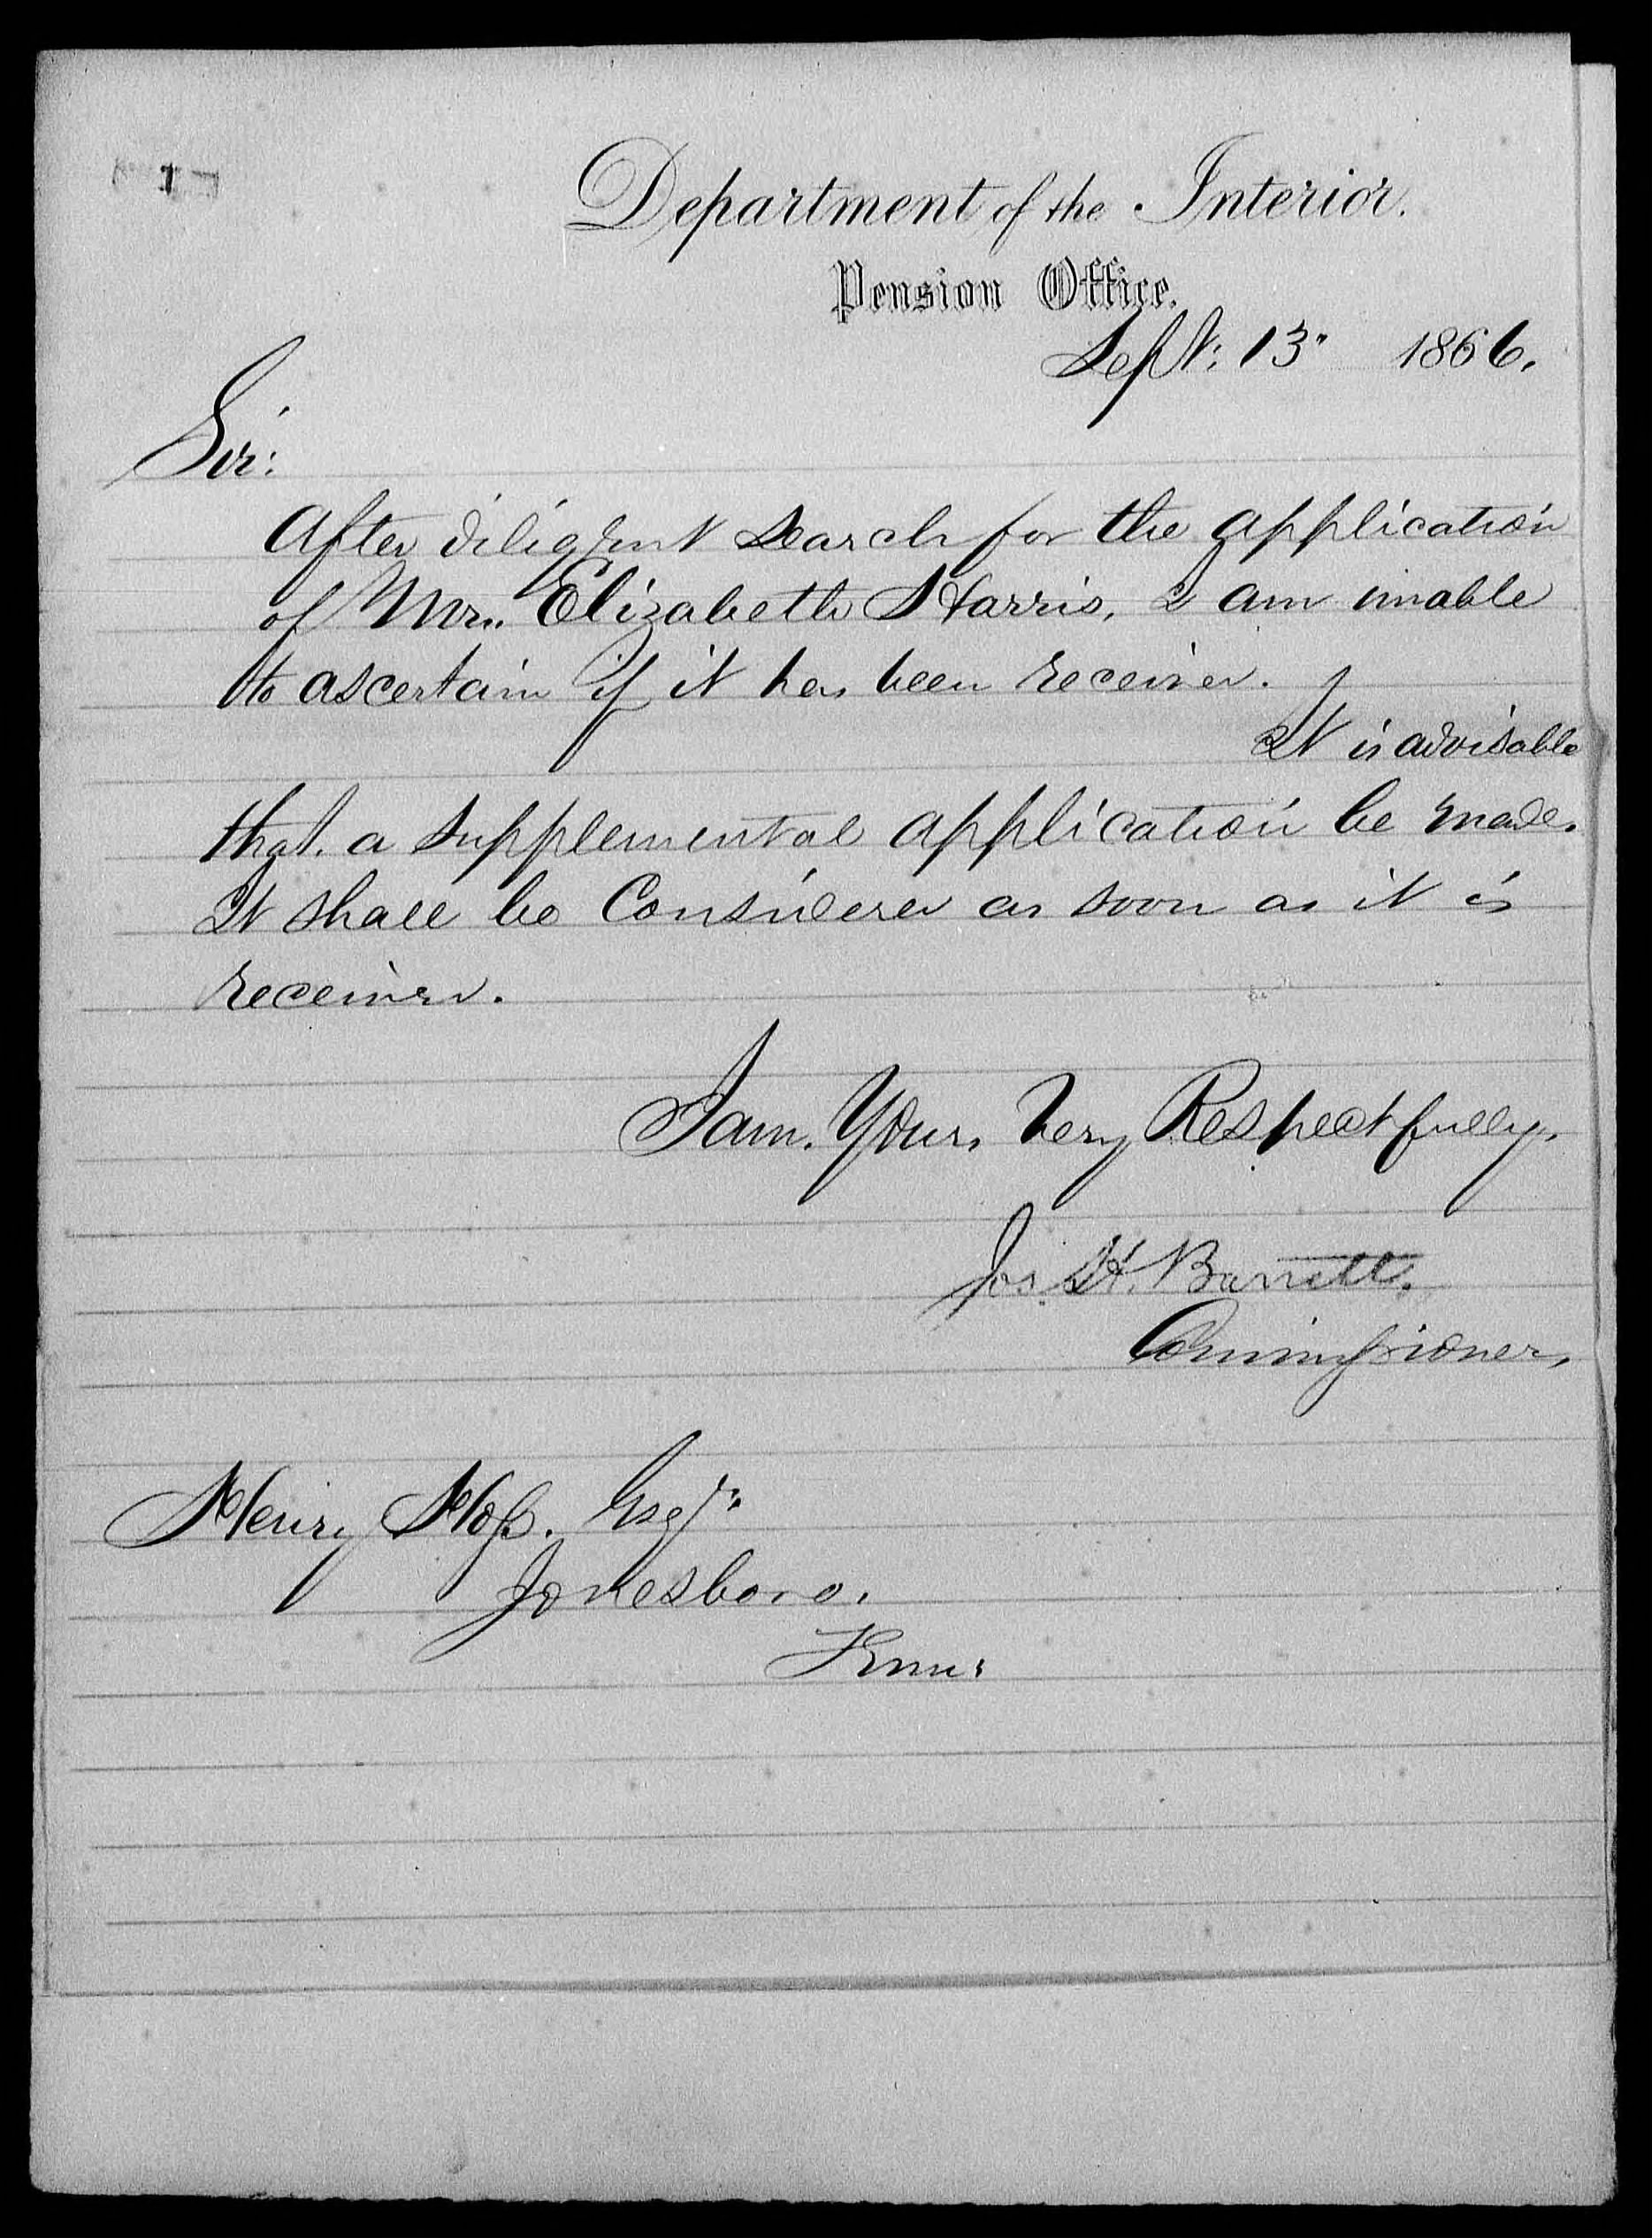 Department of the Interior.
Pension Office.
Sept: 13" 1866.
Sir:
After diligent search for the application
of Mrs. Elizabeth Harris, I am unable
to ascertain if it has been received.
It is advisable
that a supplemental application be made.
It shall be Considered as soon as it is
received.
I am. Yours Very Respectfully.
Jos. H. Barrett.
Commissioner,
Henry Hoss. Esqr.
Jonesboro.
Tenn: